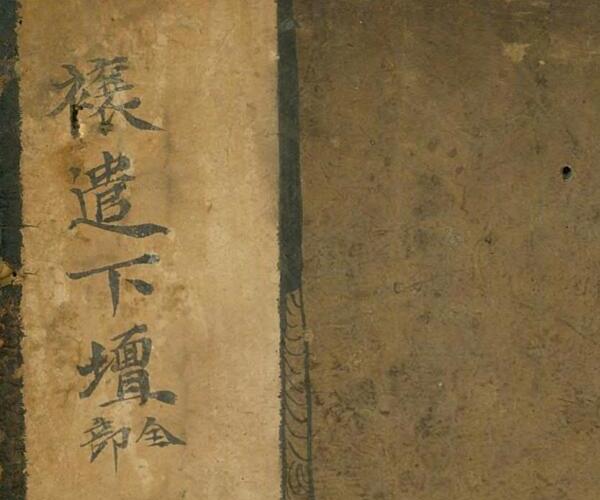 禳遣下壇全部